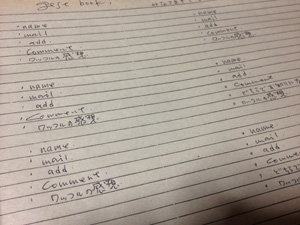 ・name
・mail
・add
・Comment
・ワッフルの感想
・name
・mail
・add
・Comment
・ワッフルの感想
・name
・mail
・add
・Comment
・ワッフルの感想
・name
・mail
・add
・Comment
・ワッフルの感想
・name
・mail
・add
・Comment
・ワッフルの感想
・name
・mail
・add
・Comment